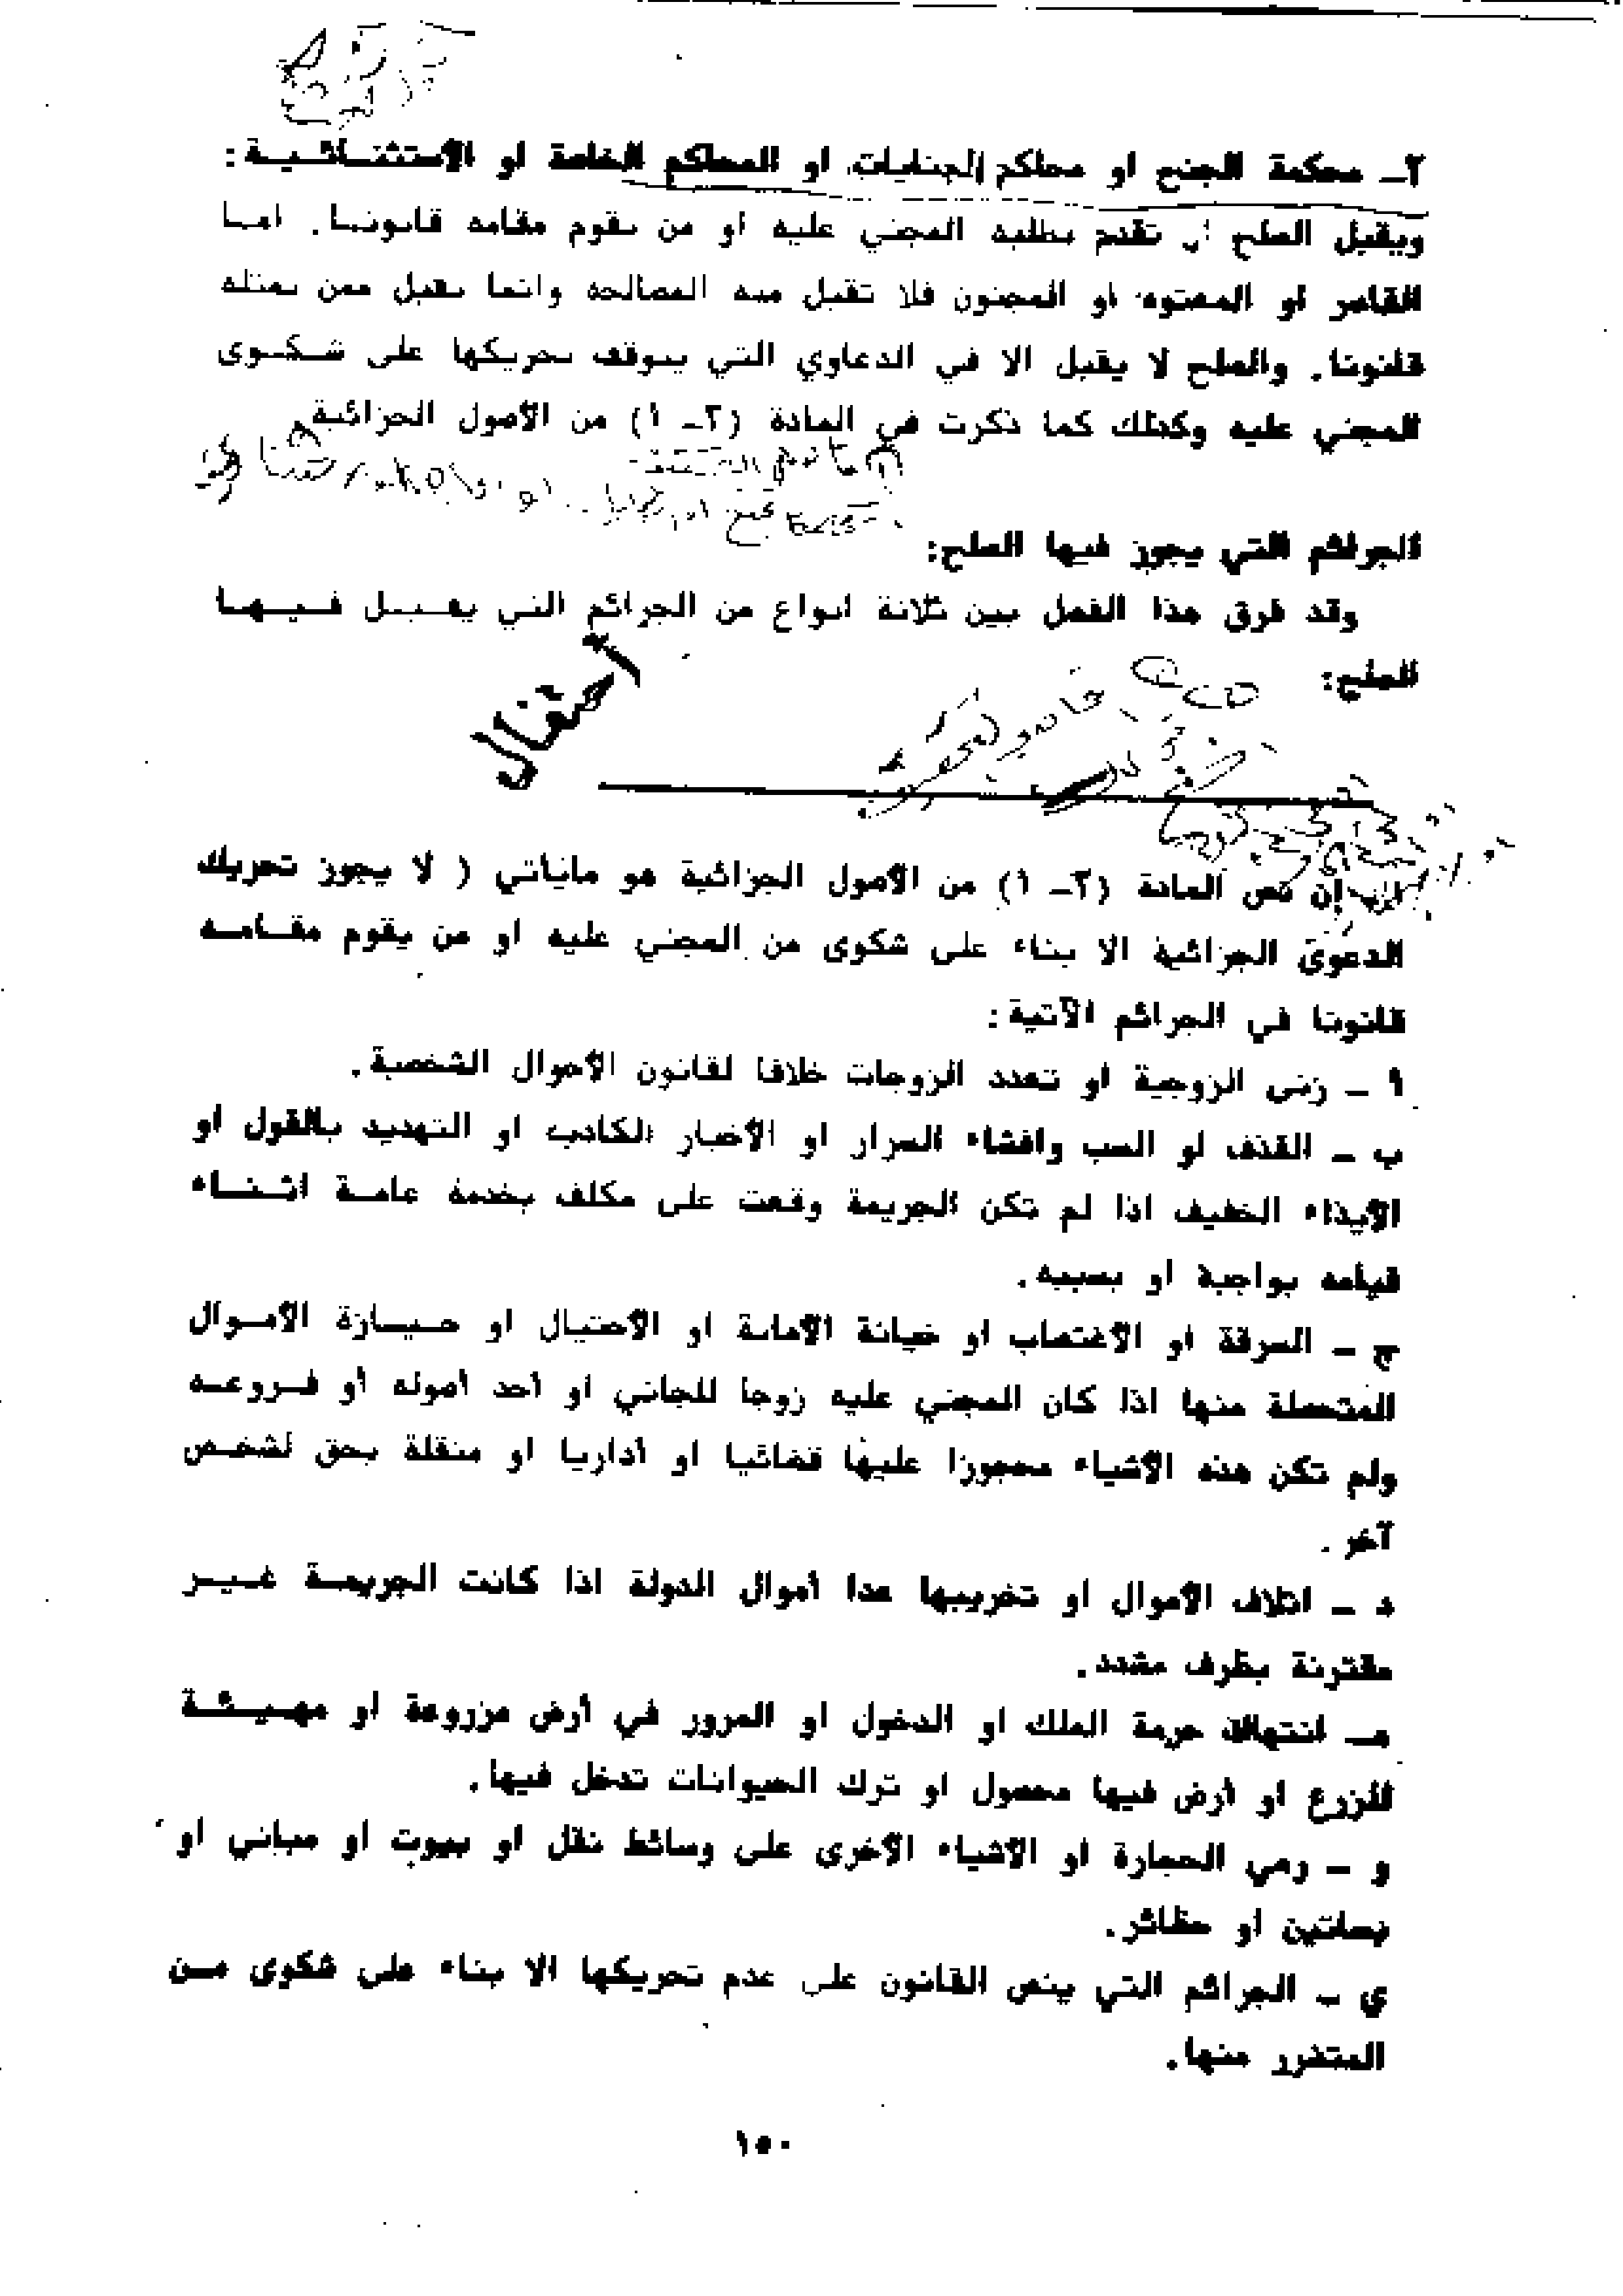 ٢ـ محكمة الجنح او محاكم الجنايات او المحاكم الخاصة او الاستثنـائـيـة:
ويقبل الصلح تقدم بطلبه المجني عليه او من يقوم مقامه قانونـا. امـا
القاصر او المعتوه او المجنون فلا تقبل منه المصالحه وانما يقبل ممن يمثله
قانونا. والصلح لا يقبل الا في الدعاوي التي يتوقف تحريكها على شـكـوى
المجني عليه وكذلك كما ذكرت في المادة (٣ـ ١) من الأصول الجزائية
الجرائم التي يجوز فيها الصلح:
وقد فرق هذا الفصل بين ثلاثة انواع من الجرائم التي يقـبـل فـيـهـا
الصلح:
احتفال
إن نص المادة (٣ـ ١) من الأصول الجزائية هو ماياتي ( لا يجوز تحريك
الدعوى الجزائية الا بناء على شكوى من المجني عليه او من يقوم مقـامـه
قانونا في الجرائم الآتية:
أ ـ زنى الزوجية او تعدد الزوجات خلافا لقانون الأحوال الشخصية.
ب ـ القذف او السب وافشاء السرار او الأخبار الكاذب او التهديد بالقول او
الايذاء الخفيف اذا لم تكن الجريمة وقعت على مكلف بخدمة عامـة اثـنـاء
قيامه بواجبة او بسببه.
ج ـ السرقة او الاغتصاب او خيانة الأمانة او الاحتيال او حـيـازة الأمـوال
المتحصلة منها اذا كان المجني عليه زوجا للجاني او أحد أصوله أو فـروعـه
ولم تكن هذه الأشياء محجوزا عليها قضائيا او أداريا او منقلة بحق لشخـص
آخر .
د ـ اتلاف الأموال او تخريبها عدا أموال الدولة اذا كانت الجريمـة غـيـر
مقترنة بظرف مشدد.
هـ ـ انتهاك حرمة الملك او الدخول او المرور في أرض مزروعة او مهـيـئـة
للزرع او أرض فيها محصول او ترك الحيوانات تدخل فيها.
و ـ رمي الحجارة او الأشياء الأخرى على وسائط نقل او بيوت او مباني او
بساتين او حظائر.
ي ـ الجرائم التي ينص القانون على عدم تحريكها الا بناء على شكوى مـن
المتضرر منها.
١٥٠